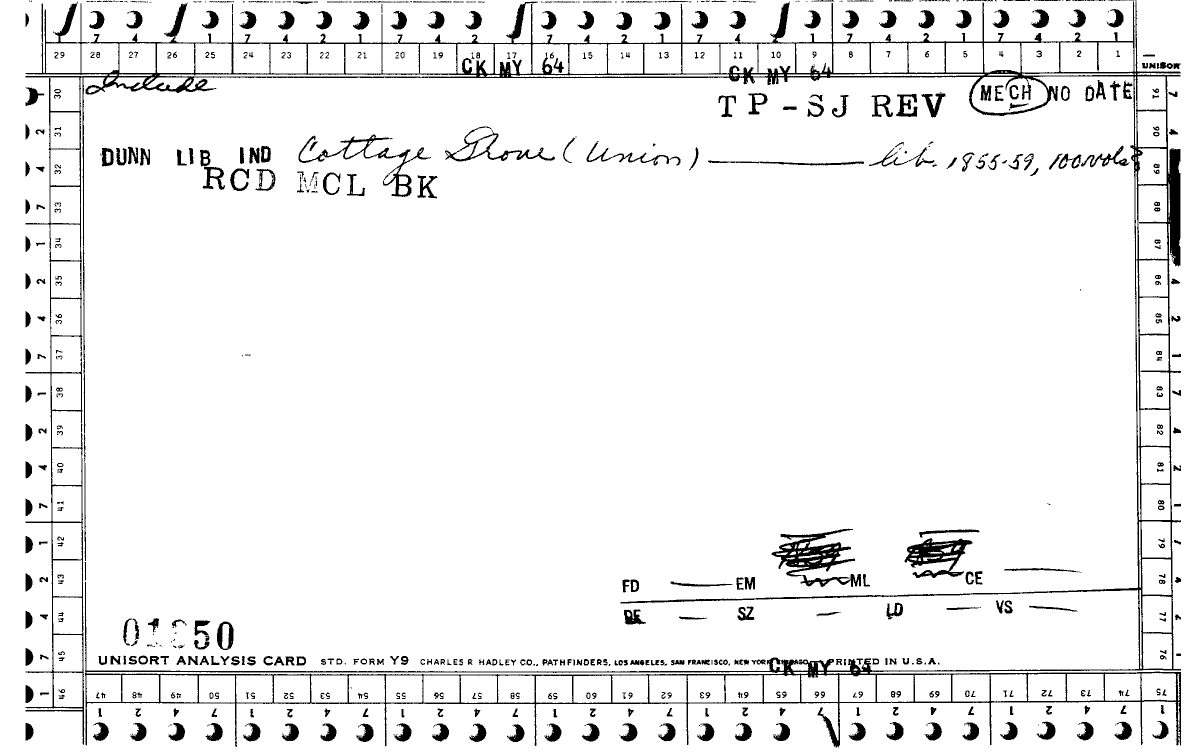 7 4 2 1 7 4 2 1 7 4 2 1 7 4 2 1 7 4 2 1 7 4 2 1 7 4 2 1
29 28 27 26 25 24 23 22 21 20 19 18 17 16 15 14 13 12 11 10 9 8 7 6 5 4 3 2 1
CK MY 64 CK MY 64 UNISORT
Include
TP-SJ REV MECH NO DATE
DUNN LIB IND Cottage Grove (Union) — lib. 1855-59, 100 vols
RCD MCL BK
30 31 32 33 34 35 36 37 38 39 40 41 42 43 44 45 46
91 90 89 88 87 86 85 84 83 82 81 80 79 78 77 76
FD — EM ML CE —
DE — SZ — LD — VS —
50
UNISORT ANALYSIS CARD STD. FORM Y9 CHARLES R HADLEY CO., PATHFINDERS, LOS ANGELES, SAN FRANCISCO, NEW YORK PRINTED IN U.S.A.
CK MY 64
47 48 49 50 51 52 53 54 55 56 57 58 59 60 61 62 63 64 65 66 67 68 69 70 71 72 73 74 75
1 2 4 7 1 2 4 7 1 2 4 7 1 2 4 7 1 2 4 7 1 2 4 7 1 2 4 7 1